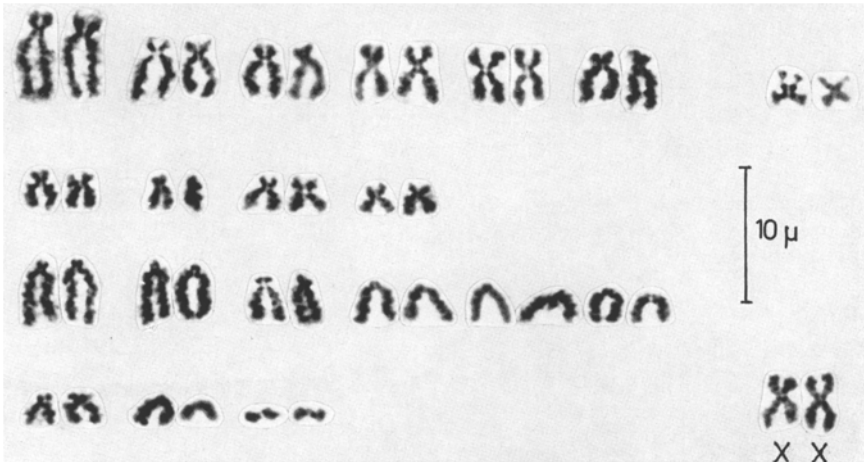 10 μ
X X